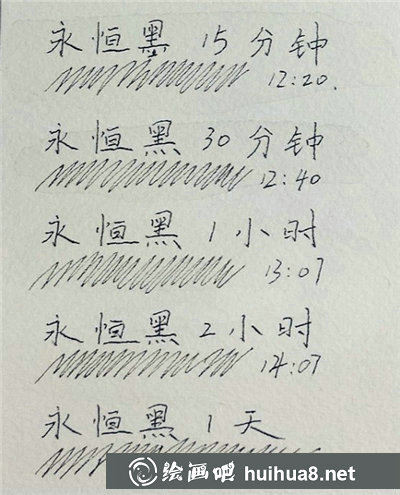 永恒黑 15分钟
12:20.
永恒黑 30分钟
12:40
永恒黑 1小时
13:07
永恒黑 2小时
14:07
永恒黑 1天
绘画吧 huihua8.net